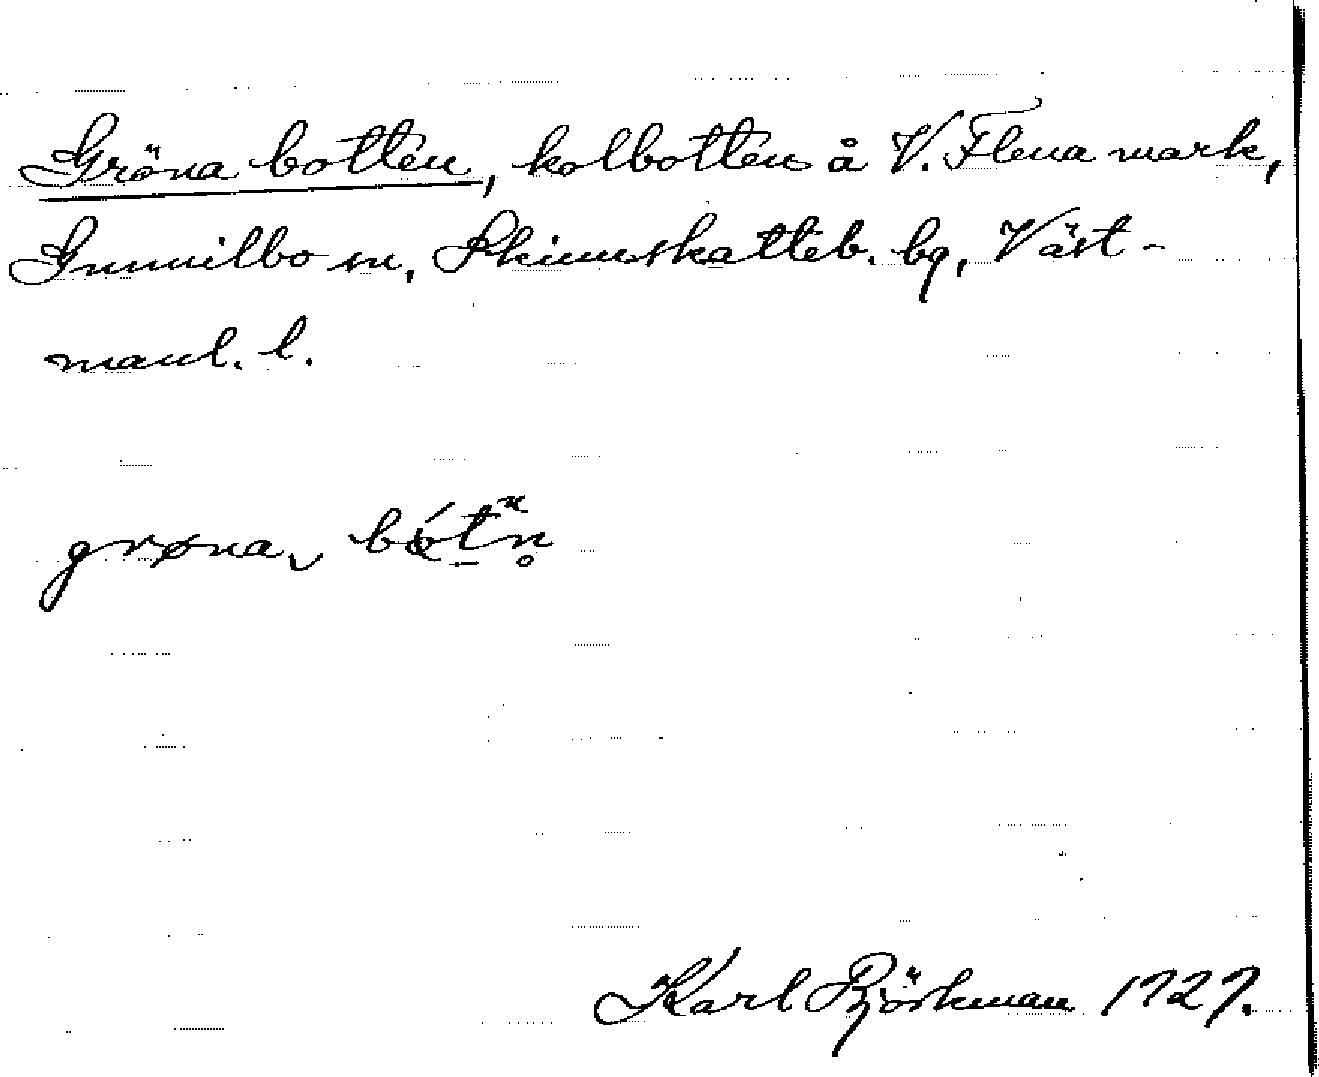 Gröna botten, kolbotten å V. Flena mark,
Gunnilbo sn, Skinnskatteb. bg, Väst-
manl. l.
grøna bót̠n̥
Karl Björkman 1927.